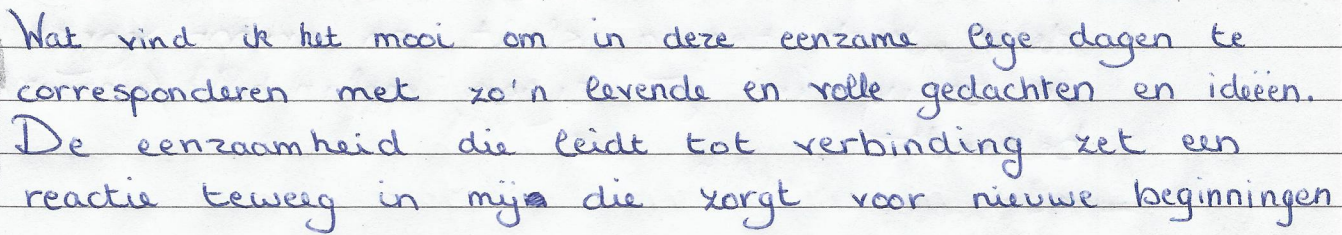 Wat vind ik het mooi om in deze eenzame lege dagen te
corresponderen met zo'n levende en volle gedachten en ideeën.
De eenzaamheid die leidt tot verbinding zet een
reactie teweeg in mij die zorgt voor nieuwe beginningen